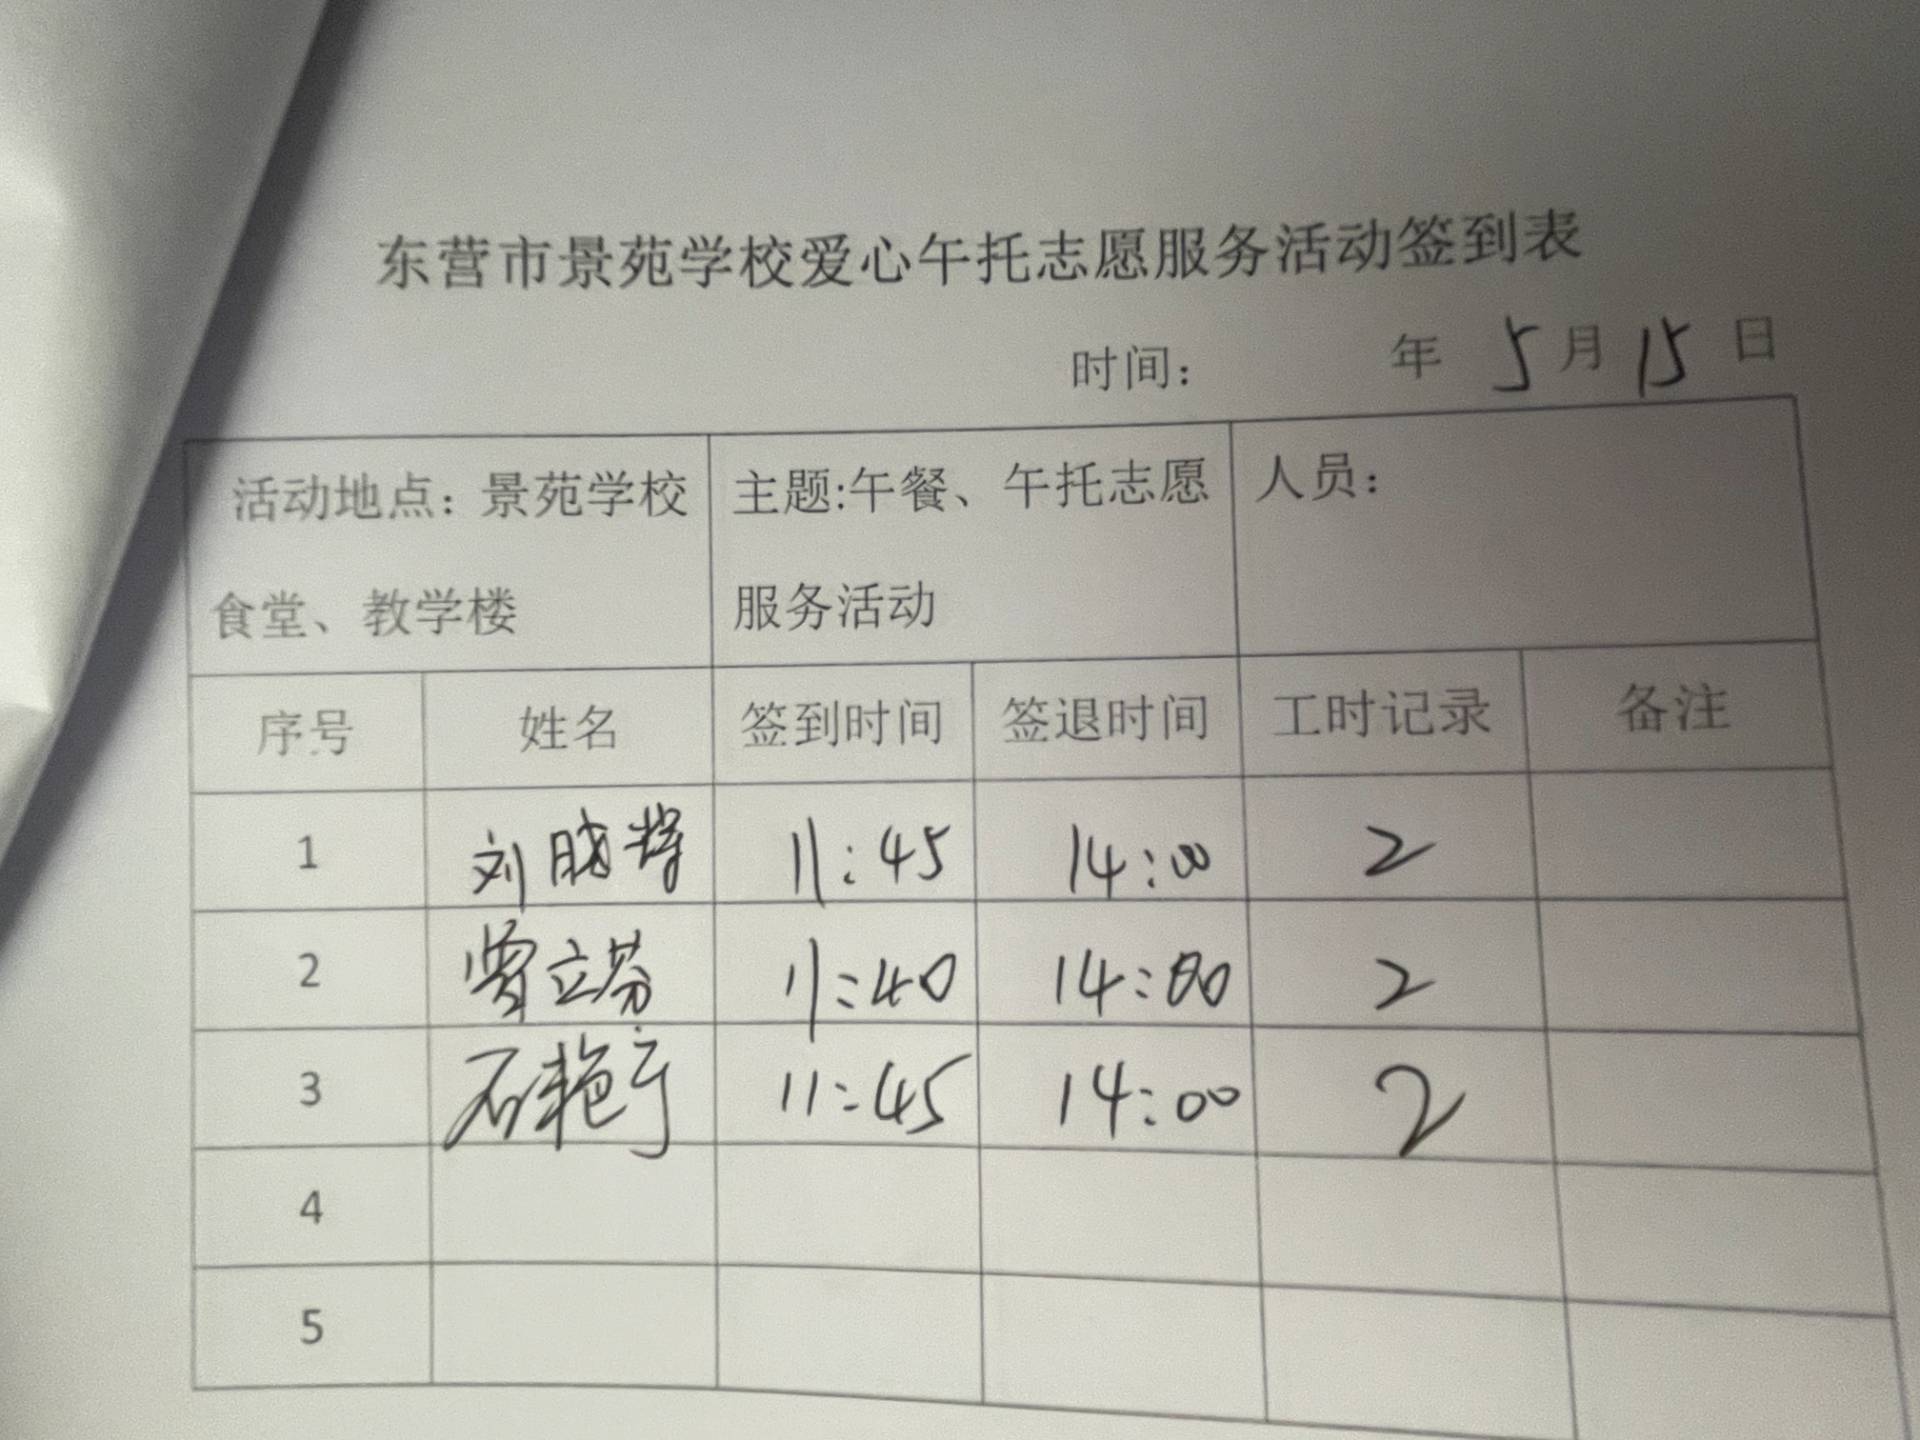 东营市景苑学校爱心午托志愿服务活动签到表
时间： 年 5 月 15 日
活动地点：景苑学校 主题:午餐、午托志愿 人员：
食堂、教学楼 服务活动
序号 姓名 签到时间 签退时间 工时记录 备注
1 刘晓辉 11:45 14:00 2
2 曾立芬 11:40 14:00 2
3 石艳 11:45 14:00 2
4
5